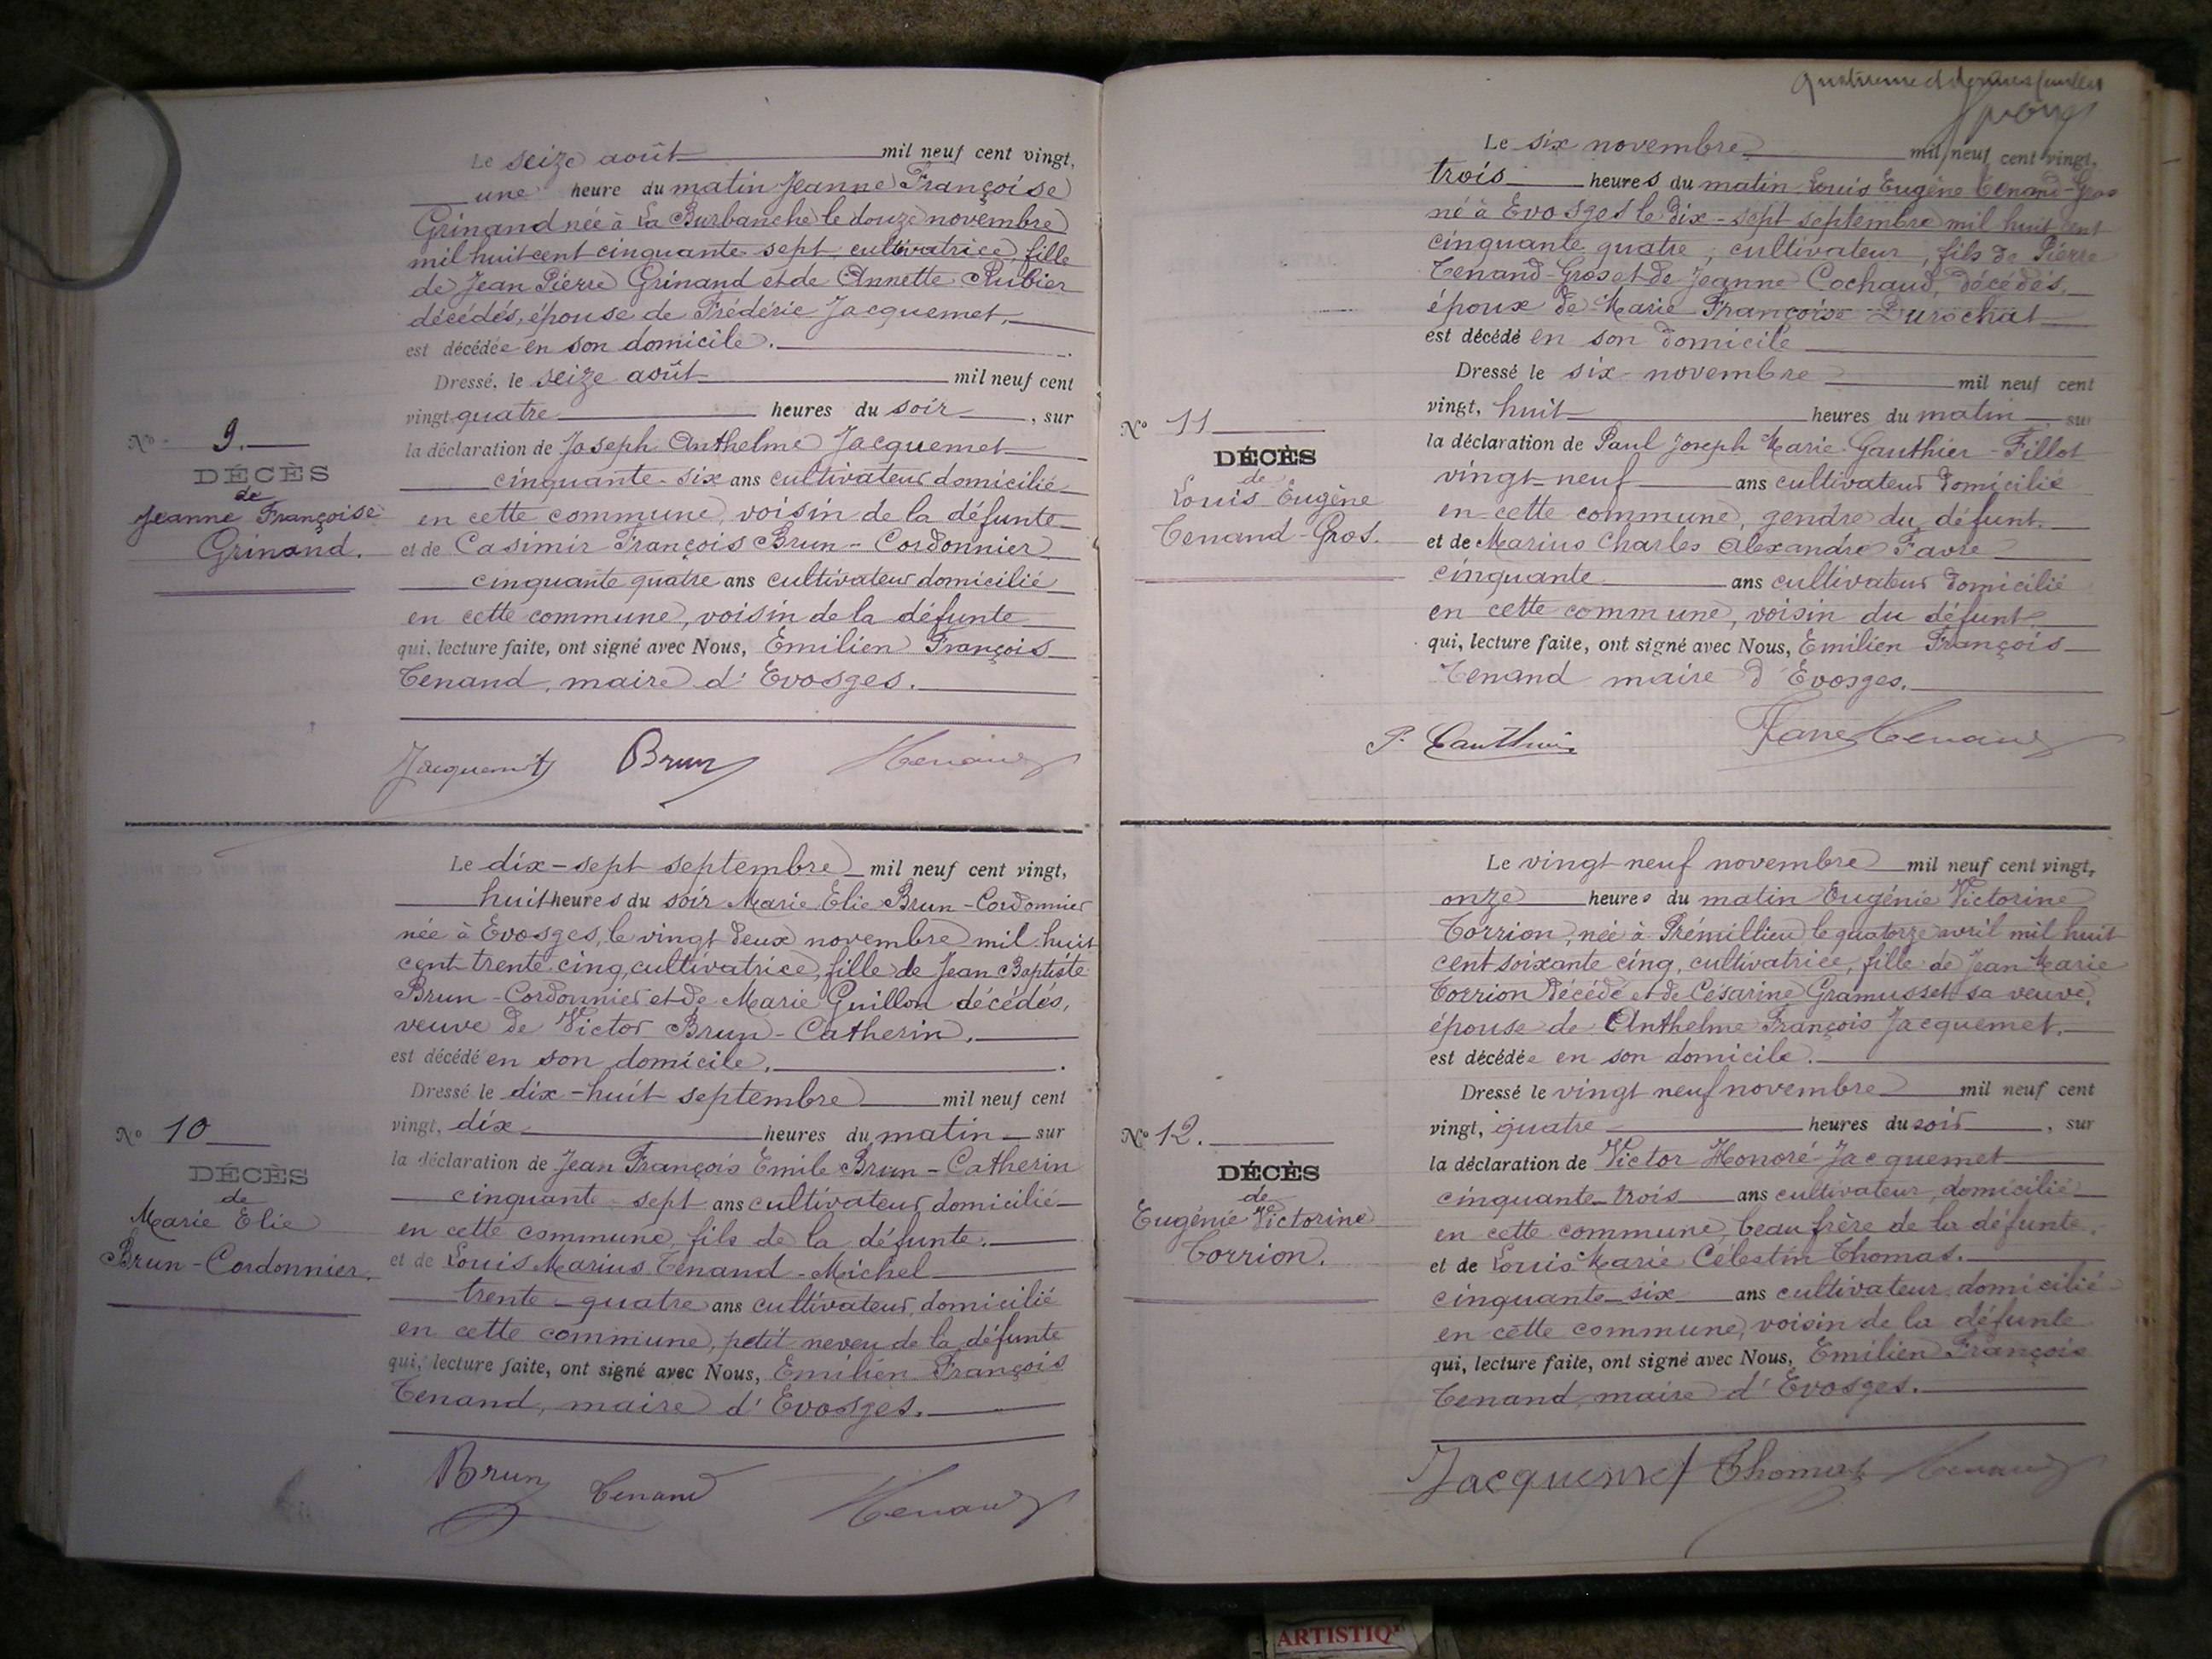 Le seize août mil neuf cent vingt,
une heure du matin Jeanne Françoise
Grinand née à La Burbanche le douze novembre
mil huit cent cinquante-sept, cultivatrice, fille
de Jean Pierre Grinand et de Annette Rubier
décédés, épouse de Frédéric Jacquemet,
est décédée en son domicile.
Dressé, le seize août mil neuf cent
vingt quatre heures du soir, sur
la déclaration de Joseph Anthelme Jacquemet
cinquante-six ans cultivateur domicilié
en cette commune, voisin de la défunte
et de Casimir François Brun-Cordonnier
cinquante quatre ans cultivateur domicilié
en cette commune, voisin de la défunte
qui, lecture faite, ont signé avec Nous, Emilien François
Tenand, maire d'Evosges.
N° 9.
DÉCÈS
de
Jeanne Françoise
Grinand.
Jacquemet Brun Tenand
Le dix-sept septembre mil neuf cent vingt,
huit heures du soir Marie Elie Brun-Cordonnier
née à Evosges, le vingt deux novembre mil huit
cent trente cinq, cultivatrice, fille de Jean Baptiste
Brun-Cordonnier et de Marie Guillon décédés,
veuve de Victor Brun-Catherin,
est décédé en son domicile.
Dressé le dix-huit septembre mil neuf cent
vingt, dix heures du matin sur
la déclaration de Jean François Emile Brun-Catherin
cinquante-sept ans cultivateur, domicilié
en cette commune, fils de la défunte.
et de Louis Marius Tenand-Michel
trente-quatre ans cultivateur, domicilié
en cette commune, petit neveu de la défunte
qui, lecture faite, ont signé avec Nous, Emilien François
Tenand, maire d'Evosges.
N° 10
DÉCÈS
de
Marie Elie
Brun-Cordonnier.
Brun Tenand Tenand
Le six novembre mil neuf cent vingt,
trois heures du matin Louis Eugène Tenand-Gros
né à Evosges le dix-sept septembre mil huit cent
cinquante quatre, cultivateur, fils de Pierre
Tenand-Gros et de Jeanne Cochaud, décédés,
époux de Marie Françoise Durochat
est décédé en son domicile
Dressé le six novembre mil neuf cent
vingt, huit heures du matin, sur
la déclaration de Paul Joseph Marie Gauthier-Fillot
vingt-neuf ans cultivateur domicilié
en cette commune, gendre du défunt.
et de Marius Charles Alexandre Favre
cinquante ans cultivateur domicilié
en cette commune, voisin du défunt.
qui, lecture faite, ont signé avec Nous, Emilien François
Tenand maire d'Evosges.
N° 11
DÉCÈS
de
Louis Eugène
Tenand-Gros.
P. Gauthier Favre Tenand
Le vingt neuf novembre mil neuf cent vingt,
onze heures du matin Eugénie Victorine
Torrion, née à Prémillieu le quatorze avril mil huit
cent soixante cinq, cultivatrice, fille de Jean Marie
Torrion décédé et de Césarine Gramusset sa veuve,
épouse de Anthelme François Jacquemet,
est décédée en son domicile.
Dressé le vingt neuf novembre mil neuf cent
vingt, quatre heures du soir, sur
la déclaration de Victor Honoré Jacquemet
cinquante-trois ans cultivateur, domicilié
en cette commune, beau frère de la défunte.
et de Louis Marie Célestin Thomas.
cinquante-six ans cultivateur, domicilié
en cette commune, voisin de la défunte
qui, lecture faite, ont signé avec Nous, Emilien François
Tenand, maire d'Evosges.
N° 12.
DÉCÈS
de
Eugénie Victorine
Torrion.
Jacquemet Thomas Tenand
ARTISTIQ